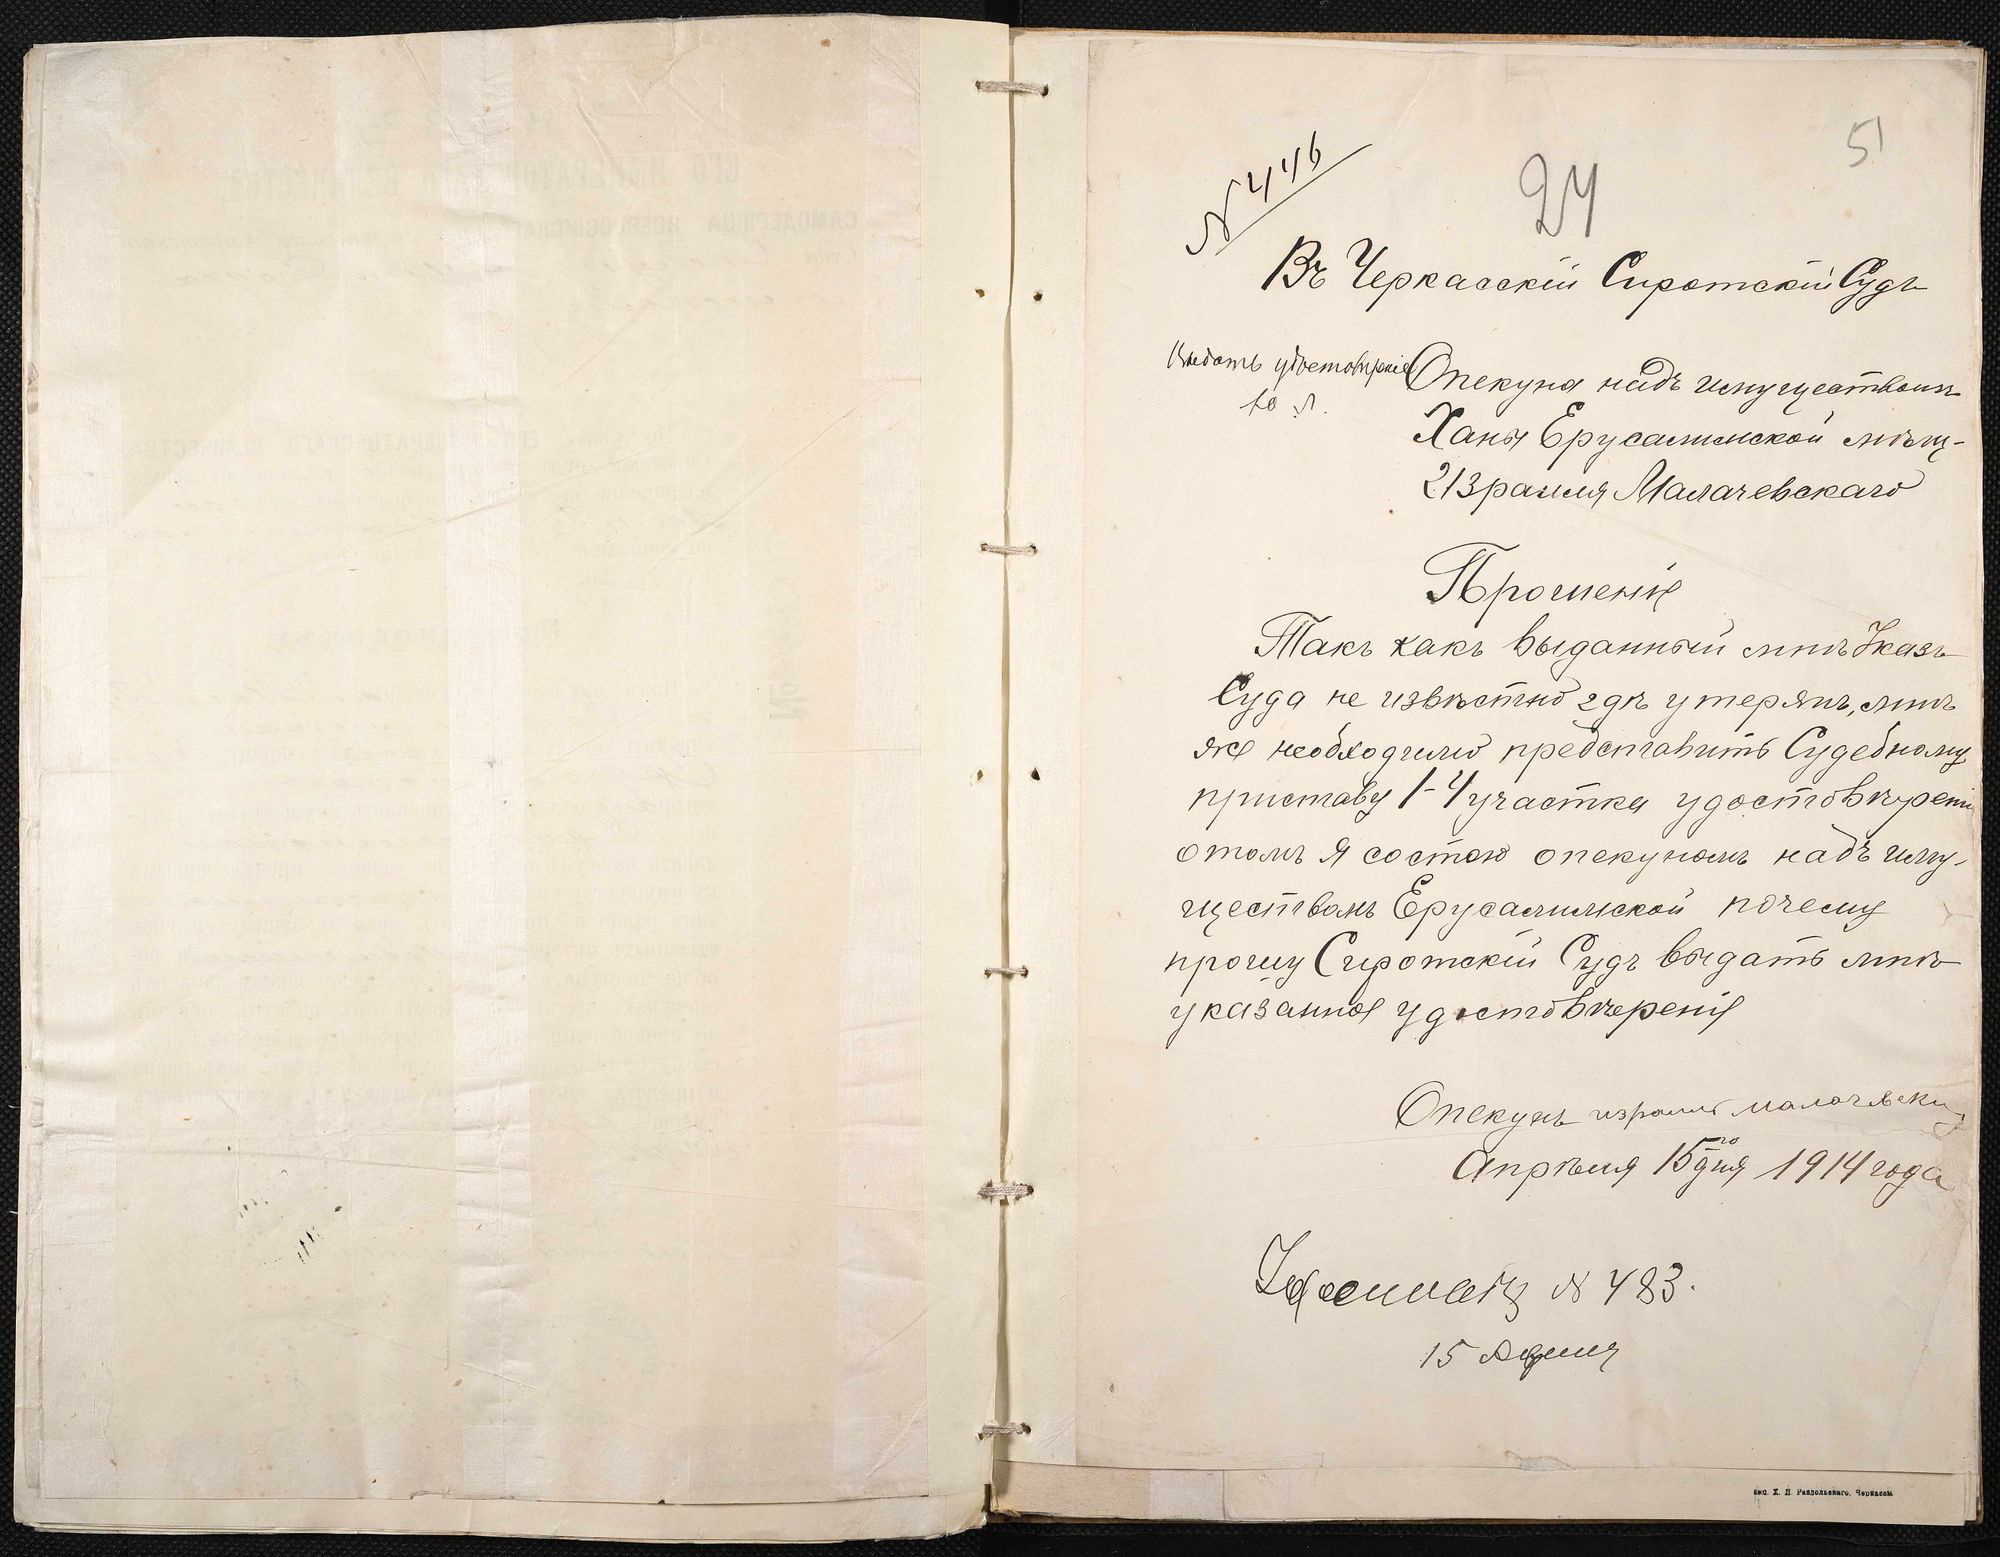 51
24
N 446
Въ Черкасскій Сиротскій Судъ
Выдать удостовѣреніе
Опекуна надъ имуществомъ
Ханы Ерусалимской мѣщ-
Израиля Малачевскаго
Прошеніе
Такъ какъ выданный мнѣ Указъ
Суда не извѣстно гдѣ утерянъ, мнѣ
же необходимо представить Судебному
приставу 1-4 участка удостовѣрені
отомъ я состою опекуномъ надъ иму-
ществомъ Ерусалимской почему
прошу Сиротскій Судъ выдать мнѣ
указанное удостовѣреніе
Опекунъ израиль малачевски
Апрѣля 15го дня 1914 года
N 483.
15 Апреля
тип. Х. Д. Распольскаго, Черкассы